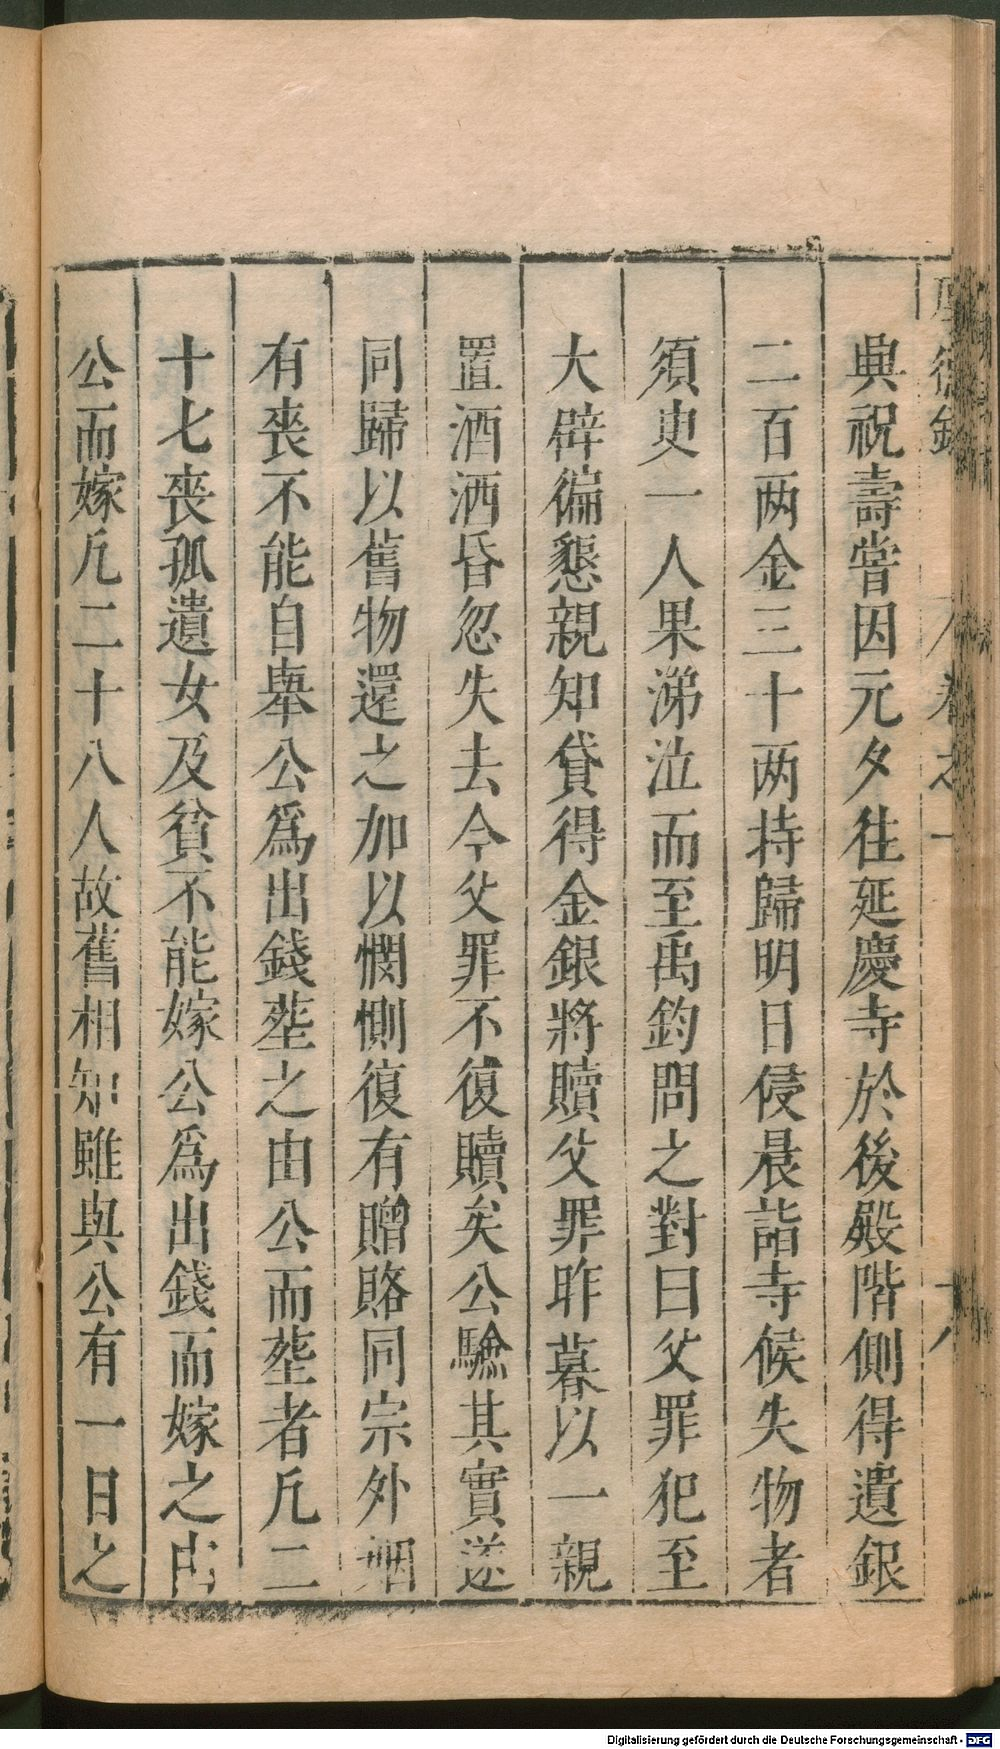 厚德錄 卷之一 十八
與祝壽嘗因元夕徃延慶寺於後殿階側得遺銀
二百两金三十两持歸明日侵晨詣寺候失物者
須臾一人果涕泣而至禹鈞問之對曰父罪犯至
大辟徧懇親知貸得金銀將贖父罪昨暮以一親
置酒洒昏忽失去今父罪不復贖矣公驗其實遂
同歸以舊物還之加以憫惻復有贈賂同宗外姻
有喪不能自舉公爲出錢塟之由公而塟者凢二
十七喪孤遺女及貧不能嫁公爲出錢而嫁之由
公而嫁凢二十八人故舊相知雖與公有一日之
Digitalisierung gefördert durch die Deutsche Forschungsgemeinschaft - DFG